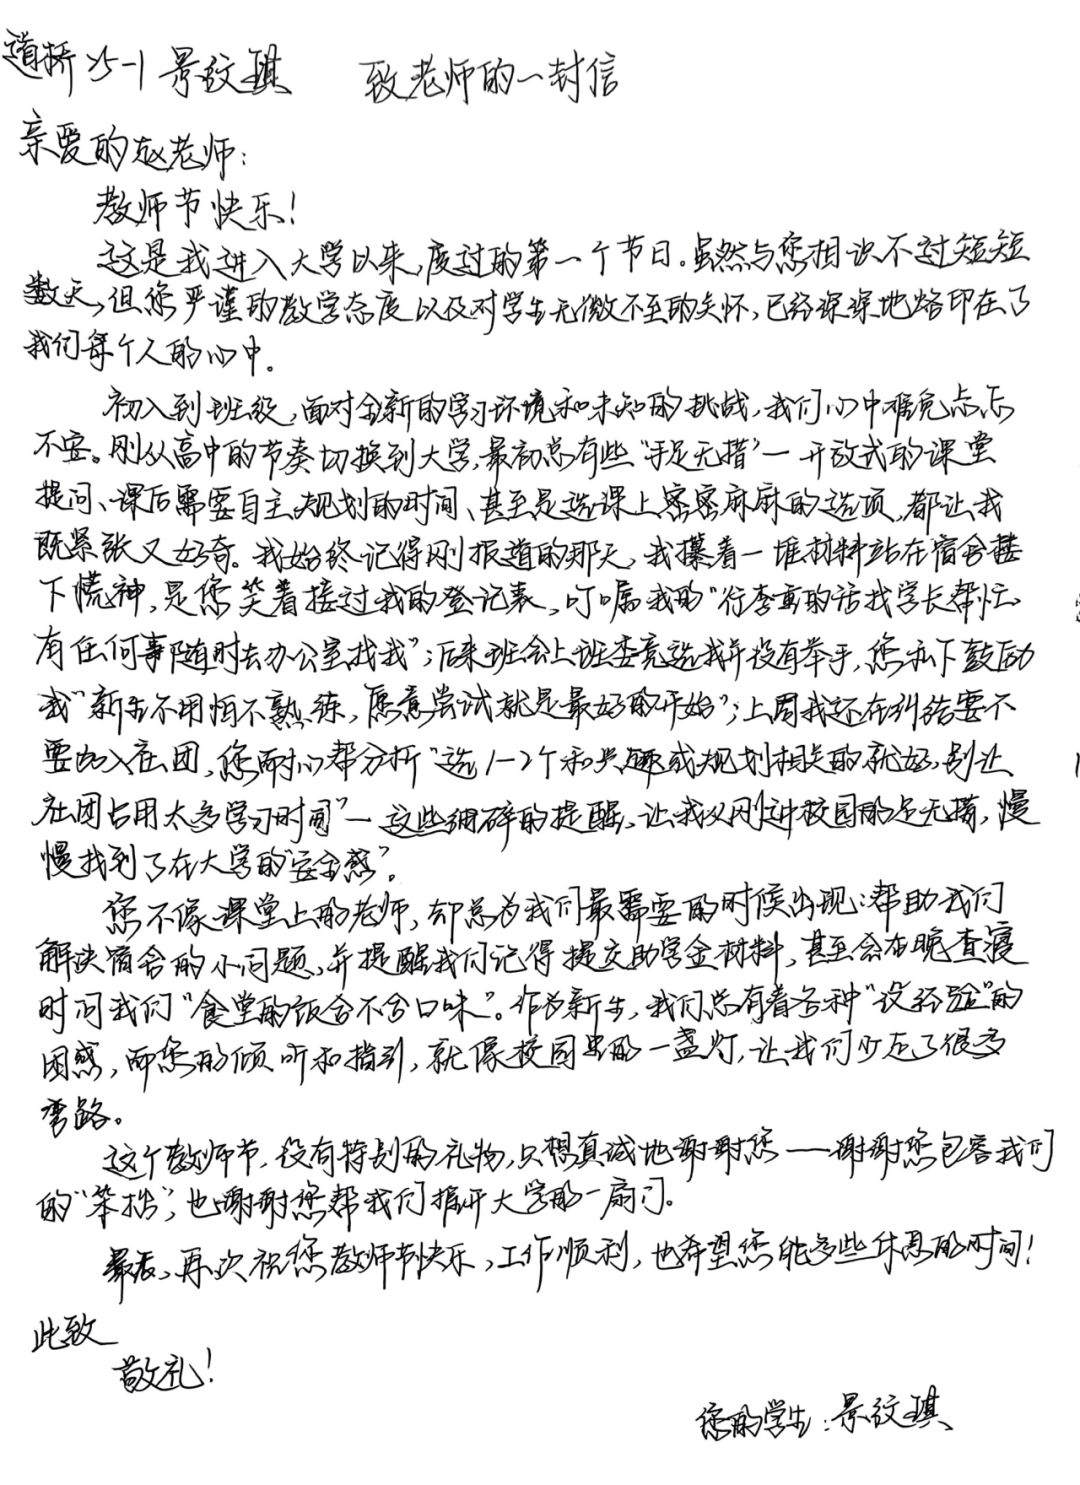 道桥25-1 景纹琪 致老师的一封信
亲爱的赵老师:
教师节快乐!
这是我进入大学以来,度过的第一个节日。虽然与您相识不过短短
数天,但您严谨的教学态度以及对学生无微不至的关怀,已经深深地烙印在了
我们每个人的心中。
初入到班级,面对全新的学习环境和未知的挑战,我们心中难免忐忑
不安。刚从高中的节奏切换到大学,最初总有些“手足无措”一开放式的课堂
提问、课后需要自主规划的时间、甚至是选课上密密麻麻的选项,都让我
既紧张又好奇。我始终记得刚报道的那天,我攥着一堆材料站在宿舍楼
下慌神,是您笑着接过我的登记表,叮嘱我的“行李重的话找学长帮忙
有任何事随时去办公室找我”;后来班会上班委竞选我并没有举手,您私下鼓励
我“新生不用怕不熟练,愿意尝试就是最好的开始”;上周我还在纠结要不
要加入社团,您耐心帮分析“选1-2个和兴趣或规划相关的就好,别让
社团占用太多学习时间”一这些细碎的提醒,让我从刚进校园的足无措,慢
慢找到了在大学的“安全感”。
您不像课堂上的老师,却总为我们最需要的时候出现:帮助我们
解决宿舍的小问题,并提醒我们记得提交助学金材料,甚至会在晚查寝
时问我们“食堂的饭合不合口味”。作为新生,我们总有着各种“没经验”的
困惑,而您的倾听和指引,就像校园里的一盏灯,让我们少走了很多
弯路。
这个教师节,没有特别的礼物,只想真诚地谢谢您——谢谢您包容我们
的“笨拙”,也谢谢您帮我们推开大学的一扇门。
最后,再次祝您教师节快乐,工作顺利,也希望您能多些休息的时间!
此致
敬礼!
您的学生:景纹琪